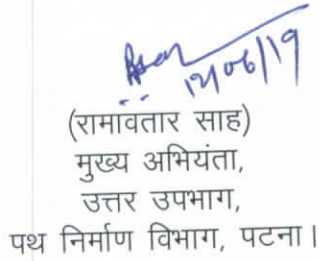 12/06/19
(रामावतार साह)
मुख्य अभियंता,
उत्तर उपभाग,
पथ निर्माण विभाग, पटना।